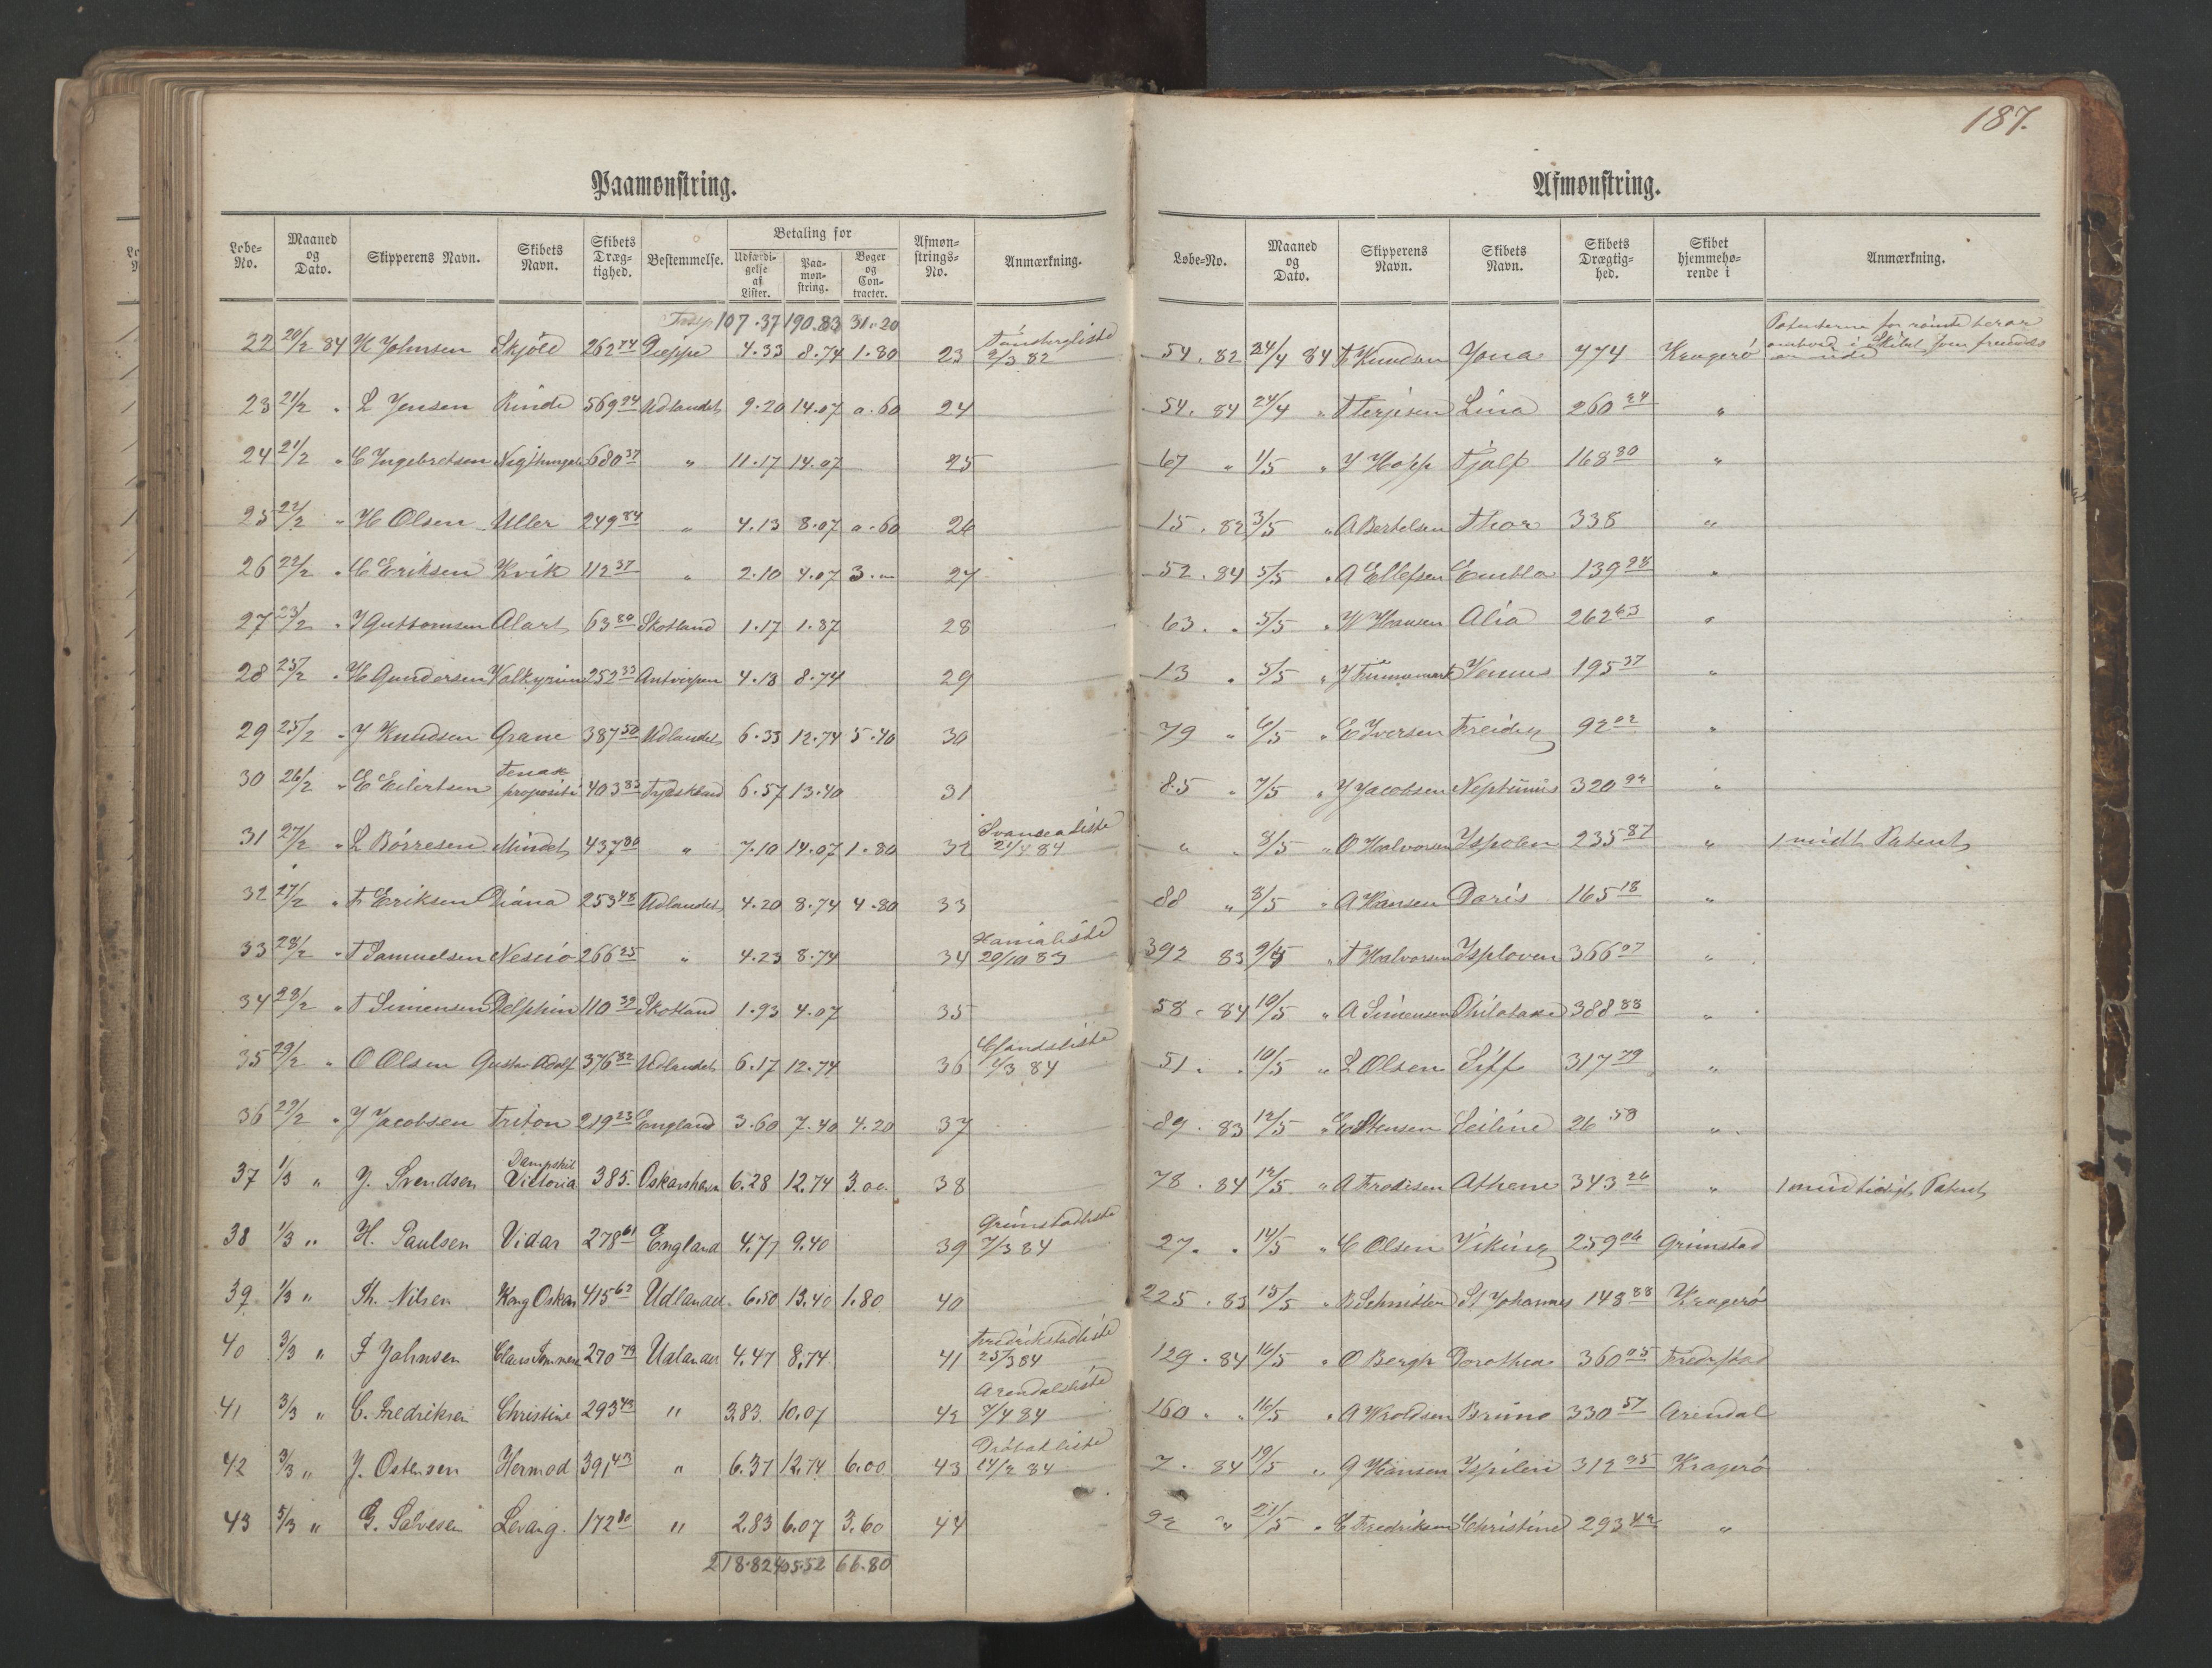 187.
Paamønstring.
Løbe-No. | Maaned og Dato. | Skipperens Navn. | Skibets Navn. | Skibets Dræg-tighed. | Bestemmelse. | Betaling for | Udfærdi-gelse af Lister. | Paa-møn-string. | Bøger og Con-tracter. | Afmøn-strings-No. | Anmærkning.
107.37 190.83 31.20
22 20/2 84 Johnsen Skjöld 262 74 Dieppe 4.33 8.74 1.80 23 Tönsbergliste 2/3 82
23 21/2 " L Jensen Rinde 569 24 Udlandet 9.20 14.07 0.60 24
24 21/2 " C Ingebretsen 680 37 " 11.17 14.07 25
25 22/2 " H Olsen Uller 249 84 " 4.13 8.07 0.60 26
26 22/2 " C Eriksen Kvik 112 37 " 2.10 4.07 3." 27
27 23/2 " J Guttormsen Alart 63 80 Skotland 1.17 1.87 28
28 25/2 " H Gundersen Valkyrien 252 33 Antverpen 4.18 8.74 29
29 25/2 " J Knudsen Grane 387 50 Udlandet 6.33 12.74 5.40 30
30 26/2 " E Eilertsen Tenax propositi 403 83 Tydskland 6.57 13.40 31
31 27/2 " L Börresen Mindet 437 80 " 7.10 14.07 1.80 32 Svansealiste 84
32 27/2 " T Eriksen Diana 253 48 Udlandet 4.20 8.74 4.80 33
33 28/2 " T Samuelsen Neseiö 266 25 " 4.23 8.74 34 20/10 83
34 28/2 " T Simensen Delphin 110 39 Skotland 1.93 4.07 35
35 29/2 " O Olsen Gustav Adolf 376 32 Udlandet 6.17 12.74 36 /3 84
36 29/2 " J Jacobsen Triton 219 23 England 3.60 7.40 4.20 37
37 1/3 " J. Svendsen Dampskib Viktoria 385. Oskarshavn 6.28 12.74 3.00 38
38 1/3 " H. Paulsen Vidar 278 61 England 4.77 9.40 39 Grimstadliste 7/3 84
39 1/3 " Th. Nilsen Kong Oskar 415 67 Udlandet 6.50 13.40 1.80 40
40 3/3 " J Johnsen 270 79 Udlandet 4.47 8.74 41 Fredrikstadliste 25/3 84
41 3/3 " C. Fredriksen Christine 293 43 " 3.83 10.07 42 Arendalsliste 7/4 84
42 3/3 " J. Ostensen Hermod 391 43 " 6.37 12.74 6.00 43 Dröbakliste 14/2 84
43 5/3 " G. Salvesen Levang. 172 80 " 2.83 6.07 3.60 44
218.82 405.52 66.80
Afmønstring.
Løbe-No. | Maaned og Dato. | Skipperens Navn. | Skibets Navn. | Skibets Drægtig-hed. | Skibet hjemmehø-rende i | Anmærkning.
54. 82 24/4 84 T Knudsen Jona 774 Kragerö Patenterne for ombord i Skibet
54. 84 24/4 " T Terjesen Lina 260 24 "
67 " 1/5 " J Hopp Fjalf 168 80 "
15. 82 3/5 " A Bertelsen Thor 338 "
52. 84 5/5 " A Ellefsen Embla 139 28 "
63. " 5/5 " W Hansen Alia 262 63 "
13 " 5/5 " J Finnemark Venus 195 37 "
79 " 6/5 " E Iversen Freidig 92 02 "
85 " 7/5 " J Jacobsen Neptunus 320 "
" " 8/5 " O Halvorsen Ispolen 235 87 " 1 midt Patent
88 " 8/5 " A Hansen Doris 165 18 "
392 83 9/5 " T Halvorsen Isploven 366 07 "
58. 84 10/5 " A Simensen 388 88 "
51. " 10/5 " L Olsen Siff 317 79 "
89. 83 12/5 " Seiline 26 58 "
78. 84 12/5 " A Fredisen Athene 343 26 " 1 midtidigt Patent
27. " 14/5 " C Olsen Viking 259 06 Grimstad
225. 83 15/5 " St Johannes 148 88 Kragerö
129. 84 16/5 " O Bergh Dorothea 360 05 Fredrstad
160. " 16/5 " A Knoldsen Bruno 330 57 Arendal
7. 84 19/5 " G Hansen Ispilen 312 25 Kragerö
92 " 21/5 " C Fredriksen Christine 293 42 "